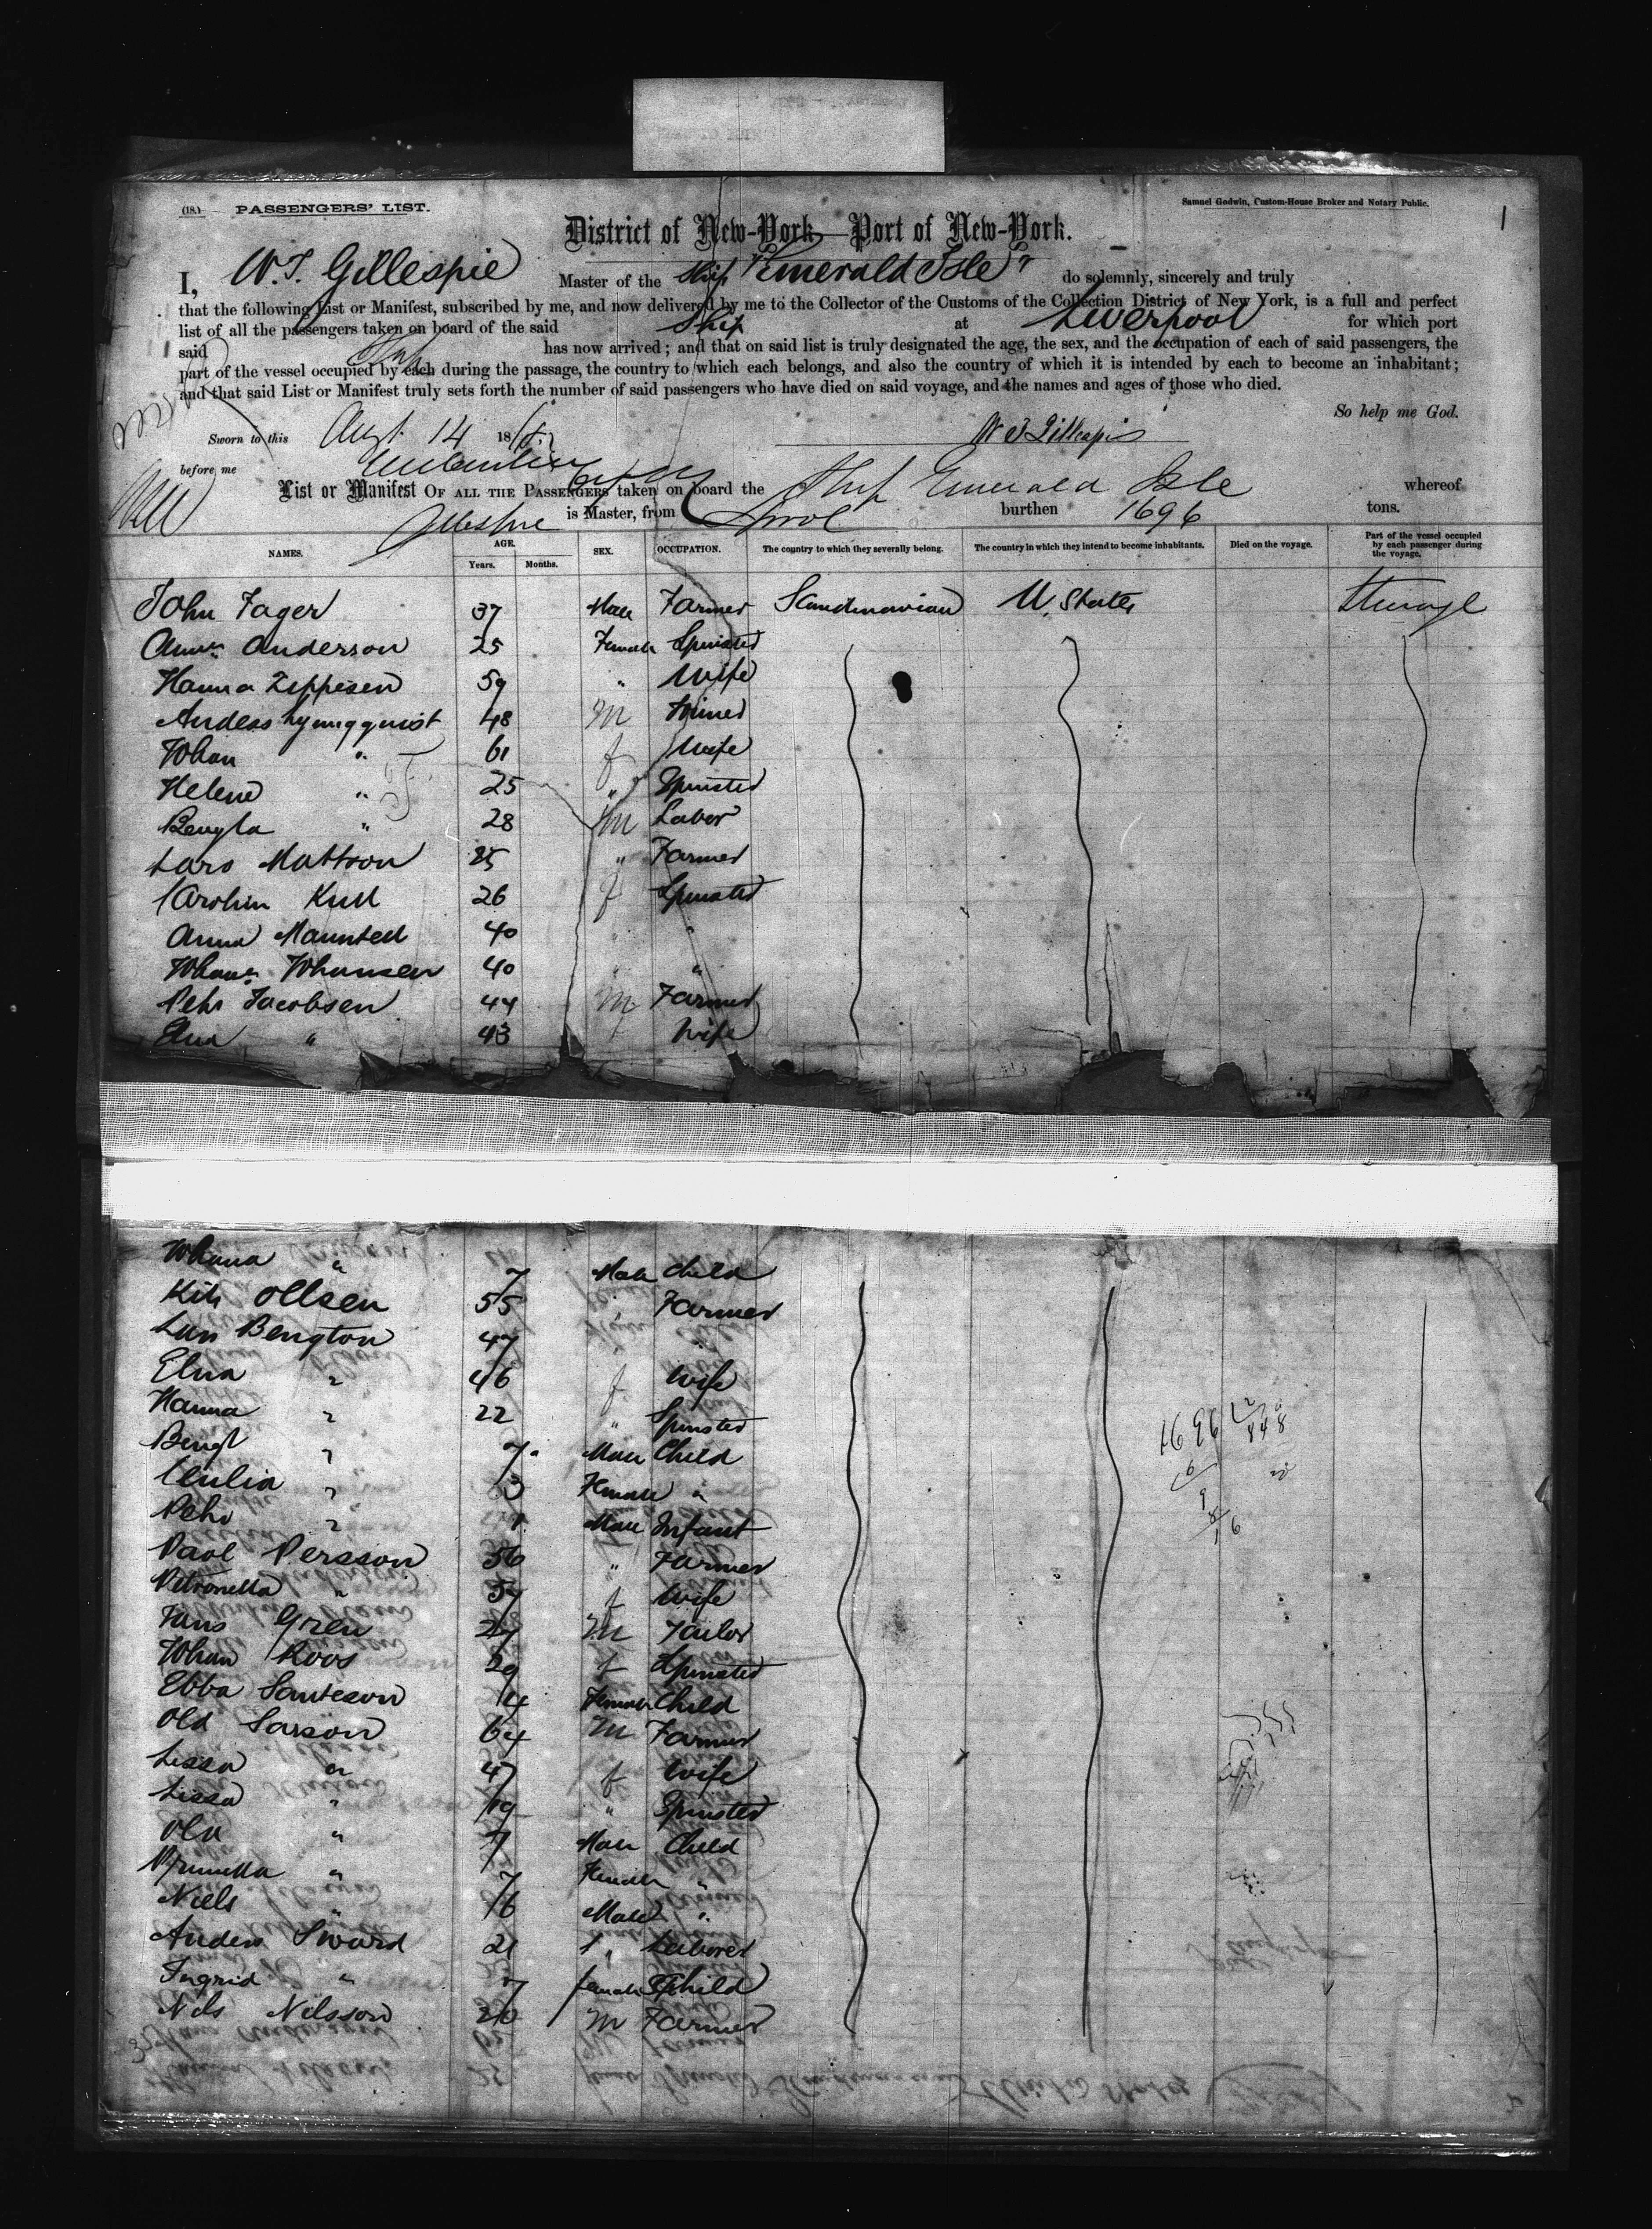 (18.) PASSENGERS' LIST.
Samuel Godwin, Custom-House Broker and Notary Public.
1
District of New-York—Port of New-York.
I, W. J. Gillespie Master of the Ship "Emerald Isle" do solemnly, sincerely and truly
that the following List or Manifest, subscribed by me, and now delivered by me to the Collector of the Customs of the Collection District of New York, is a full and perfect
list of all the passengers taken on board of the said Ship at Liverpool for which port
said Ship has now arrived; and that on said list is truly designated the age, the sex, and the occupation of each of said passengers, the
part of the vessel occupied by each during the passage, the country to which each belongs, and also the country of which it is intended by each to become an inhabitant;
and that said List or Manifest truly sets forth the number of said passengers who have died on said voyage, and the names and ages of those who died.
So help me God.
Sworn to this Augt. 14 18 W J Gillespie
before me
List or Manifest OF ALL THE PASSENGERS taken on board the Ship Emerald Isle whereof
Gillespie is Master, from Lpool burthen 1696 tons.
NAMES. AGE. Years. Months. SEX. OCCUPATION. The country to which they severally belong. The country in which they intend to become inhabitants. Died on the voyage. Part of the vessel occupied by each passenger during the voyage.
John Fager 37 Male Farmer Scandinavian U. States Steerage
Anna Anderson 25 Female Spinster
Hanna Zeppesen 59 " Wife
Anders Lyungquist 48 M Joiner
Johan " 61 f Wife
Helene " 25 " Spinster
Bengta " 28 M Labor
Lars Mattson 25 " Farmer
Karolin Kull 26 f Spinster
Anna Maunsted 40 " "
Johana Johansen 40 " "
Pehr Jacobsen 44 M Farmer
Elna " 43 Wife
Johana " 7 Male Child
Kils Ollsen 55 " Farmer
Lars Bengton 47 " "
Elna " 46 f Wife
Hanna " 22 " Spinster
Bengt " 7 Male Child
Cecilia " 3 Female "
Pehr " 1 Male Infant
Paol Persson 56 " Farmer
Petronella " 57 f Wife
Jans Gren 27 M Tailor
Johan Roos 29 f Spinster
Ebba Santeson 4 Female Child
Old Larson 64 M Farmer
Lissa " 47 f Wife
Lissa " 19 " Spinster
Ola " 7 Male Child
" 7 Female "
Niels " 6 Male "
Anders Sward 21 " Laborer
Ingrid " 7 female Child
Nils Nilsson 20 M Farmer
1696
848